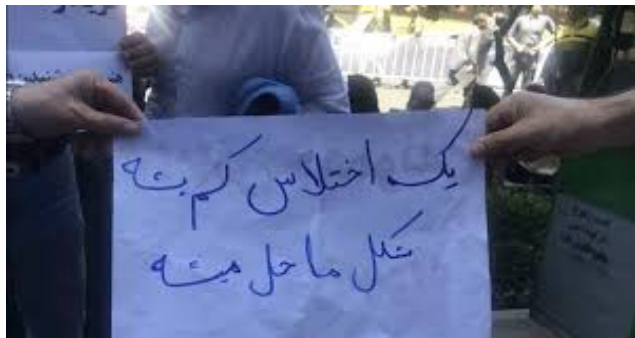 یک اختلاس کم بشه
مشکل ما حل میشه